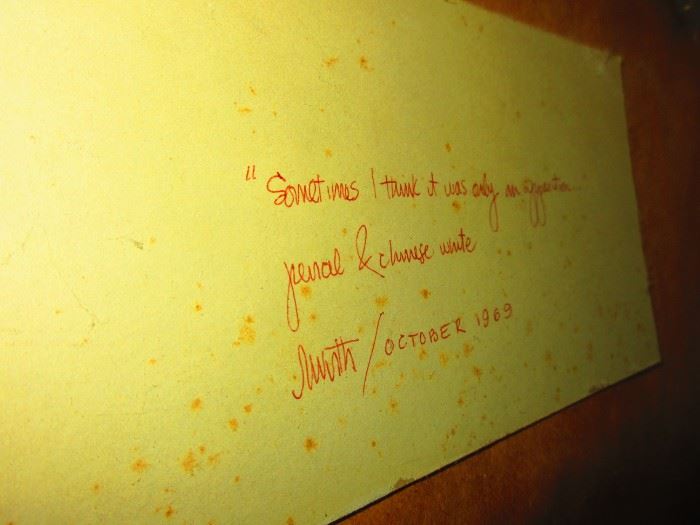 " Sometimes I think it was only an apparition...
pencil & chinese white
/ OCTOBER 1969